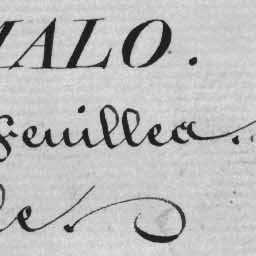 MALO.
Feuillea.
le.